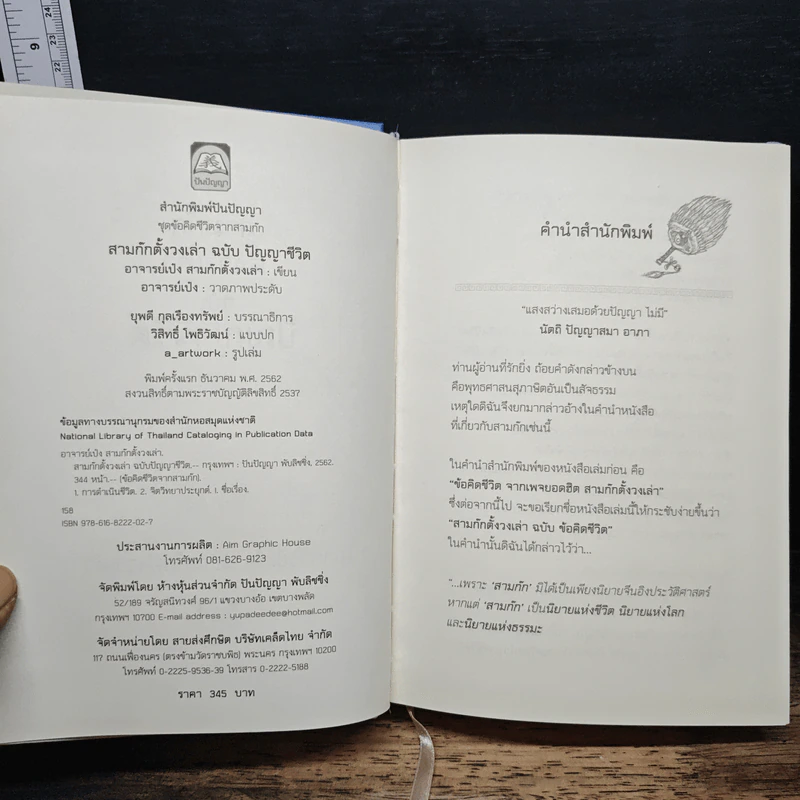 9
24
23
22
ปันปัญญา
สำนักพิมพ์ปันปัญญา
ชุดข้อคิดชีวิตจากสามก๊ก
สามก๊กตั้งวงเล่า ฉบับ ปัญญาชีวิต
อาจารย์เป้ง สามก๊กตั้งวงเล่า : เขียน
อาจารย์เป้ง : วาดภาพประดับ
ยุพดี กุลเรืองทรัพย์ : บรรณาธิการ
วิสิทธิ์ โพธิวัฒน์ : แบบปก
a_artwork : รูปเล่ม
พิมพ์ครั้งแรก ธันวาคม พ.ศ. 2562
สงวนสิทธิ์ตามพระราชบัญญัติลิขสิทธิ์ 2537
ข้อมูลทางบรรณานุกรมของสำนักหอสมุดแห่งชาติ
National Library of Thailand Cataloging in Publication Data
อาจารย์เป้ง สามก๊กตั้งวงเล่า.
สามก๊กตั้งวงเล่า ฉบับปัญญาชีวิต.-- กรุงเทพฯ : ปันปัญญา พับลิชชิ่ง, 2562.
344 หน้า.-- (ข้อคิดชีวิตจากสามก๊ก).
1. การดำเนินชีวิต. 2. จิตวิทยาประยุกต์. I. ชื่อเรื่อง.
158
ISBN 978-616-8222-02-7
ประสานงานการผลิต : Aim Graphic House
โทรศัพท์ 081-626-9123
จัดพิมพ์โดย ห้างหุ้นส่วนจำกัด ปันปัญญา พับลิชชิ่ง
52/189 จรัญสนิทวงศ์ 96/1 แขวงบางอ้อ เขตบางพลัด
กรุงเทพฯ 10700 E-mail address : yupadeedee@hotmail.com
จัดจำหน่ายโดย สายส่งศึกษิต บริษัทเคล็ดไทย จำกัด
117 ถนนเฟื่องนคร (ตรงข้ามวัดราชบพิธ) พระนคร กรุงเทพฯ 10200
โทรศัพท์ 0-2225-9536-39 โทรสาร 0-2222-5188
ราคา 345 บาท
คำนำสำนักพิมพ์
"แสงสว่างเสมอด้วยปัญญา ไม่มี"
นัตถิ ปัญญาสมา อาภา
ท่านผู้อ่านที่รักยิ่ง ถ้อยคำดังกล่าวข้างบน
คือพุทธศาสนสุภาษิตอันเป็นสัจธรรม
เหตุใดดิฉันจึงยกมากล่าวอ้างในคำนำหนังสือ
ที่เกี่ยวกับสามก๊กเช่นนี้
ในคำนำสำนักพิมพ์ของหนังสือเล่มก่อน คือ
"ข้อคิดชีวิต จากเพจยอดฮิต สามก๊กตั้งวงเล่า"
ซึ่งต่อจากนี้ไป จะขอเรียกชื่อหนังสือเล่มนี้ให้กระชับง่ายขึ้นว่า
"สามก๊กตั้งวงเล่า ฉบับ ข้อคิดชีวิต"
ในคำนำนั้นดิฉันได้กล่าวไว้ว่า...
"...เพราะ 'สามก๊ก' มิได้เป็นเพียงนิยายจีนอิงประวัติศาสตร์
หากแต่ 'สามก๊ก' เป็นนิยายแห่งชีวิต นิยายแห่งโลก
และนิยายแห่งธรรมะ